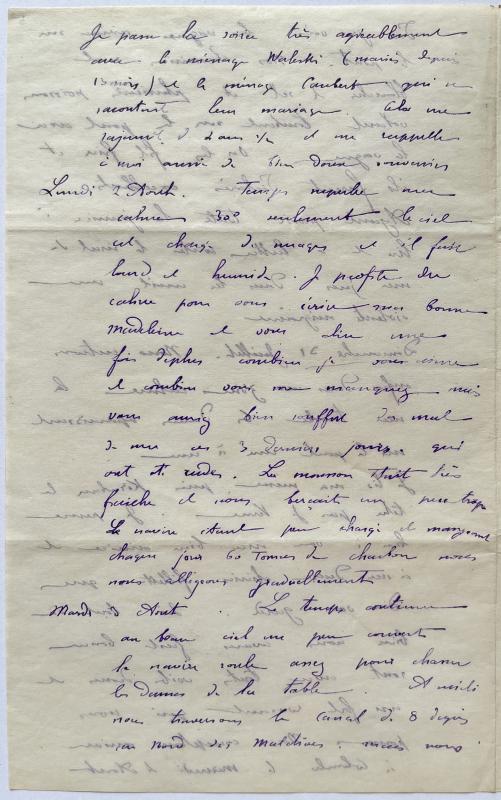 Je passe la soirée très agréablement
avec le ménage Waleski (mariés depuis
13 mois) et le ménage Caubert qui
racontent leur mariage. Cela me
rajeunit de 2 ans ½ et me rappelle
à moi aussi de bien doux souvenirs
Lundi 2 Août. Temps superbe avec
calme 30° seulement le ciel
est chargé de nuages et il fait
lourd et humide. Je profite du
calme pour vous écrire ma bonne
Madeleine et vous dire une
fois de plus combien je vous aime
et combien vous me manquez mais
vous auriez bien souffert du mal
de mer ces 3 derniers jours qui
ont été rudes. La mousson était très
fraîche et nous berçait un peu trop
Le navire étant peu chargé et mangeant
chaque jour 60 tonnes de charbon nous
nous allégeons graduellement
Mardi 3 Août. Le temps continue
au beau ciel un peu couvert
le navire roule assez pour chasser
les dames de la table. A midi
nous traversons le canal de 8 degrés
au Nord des Maldives: nous